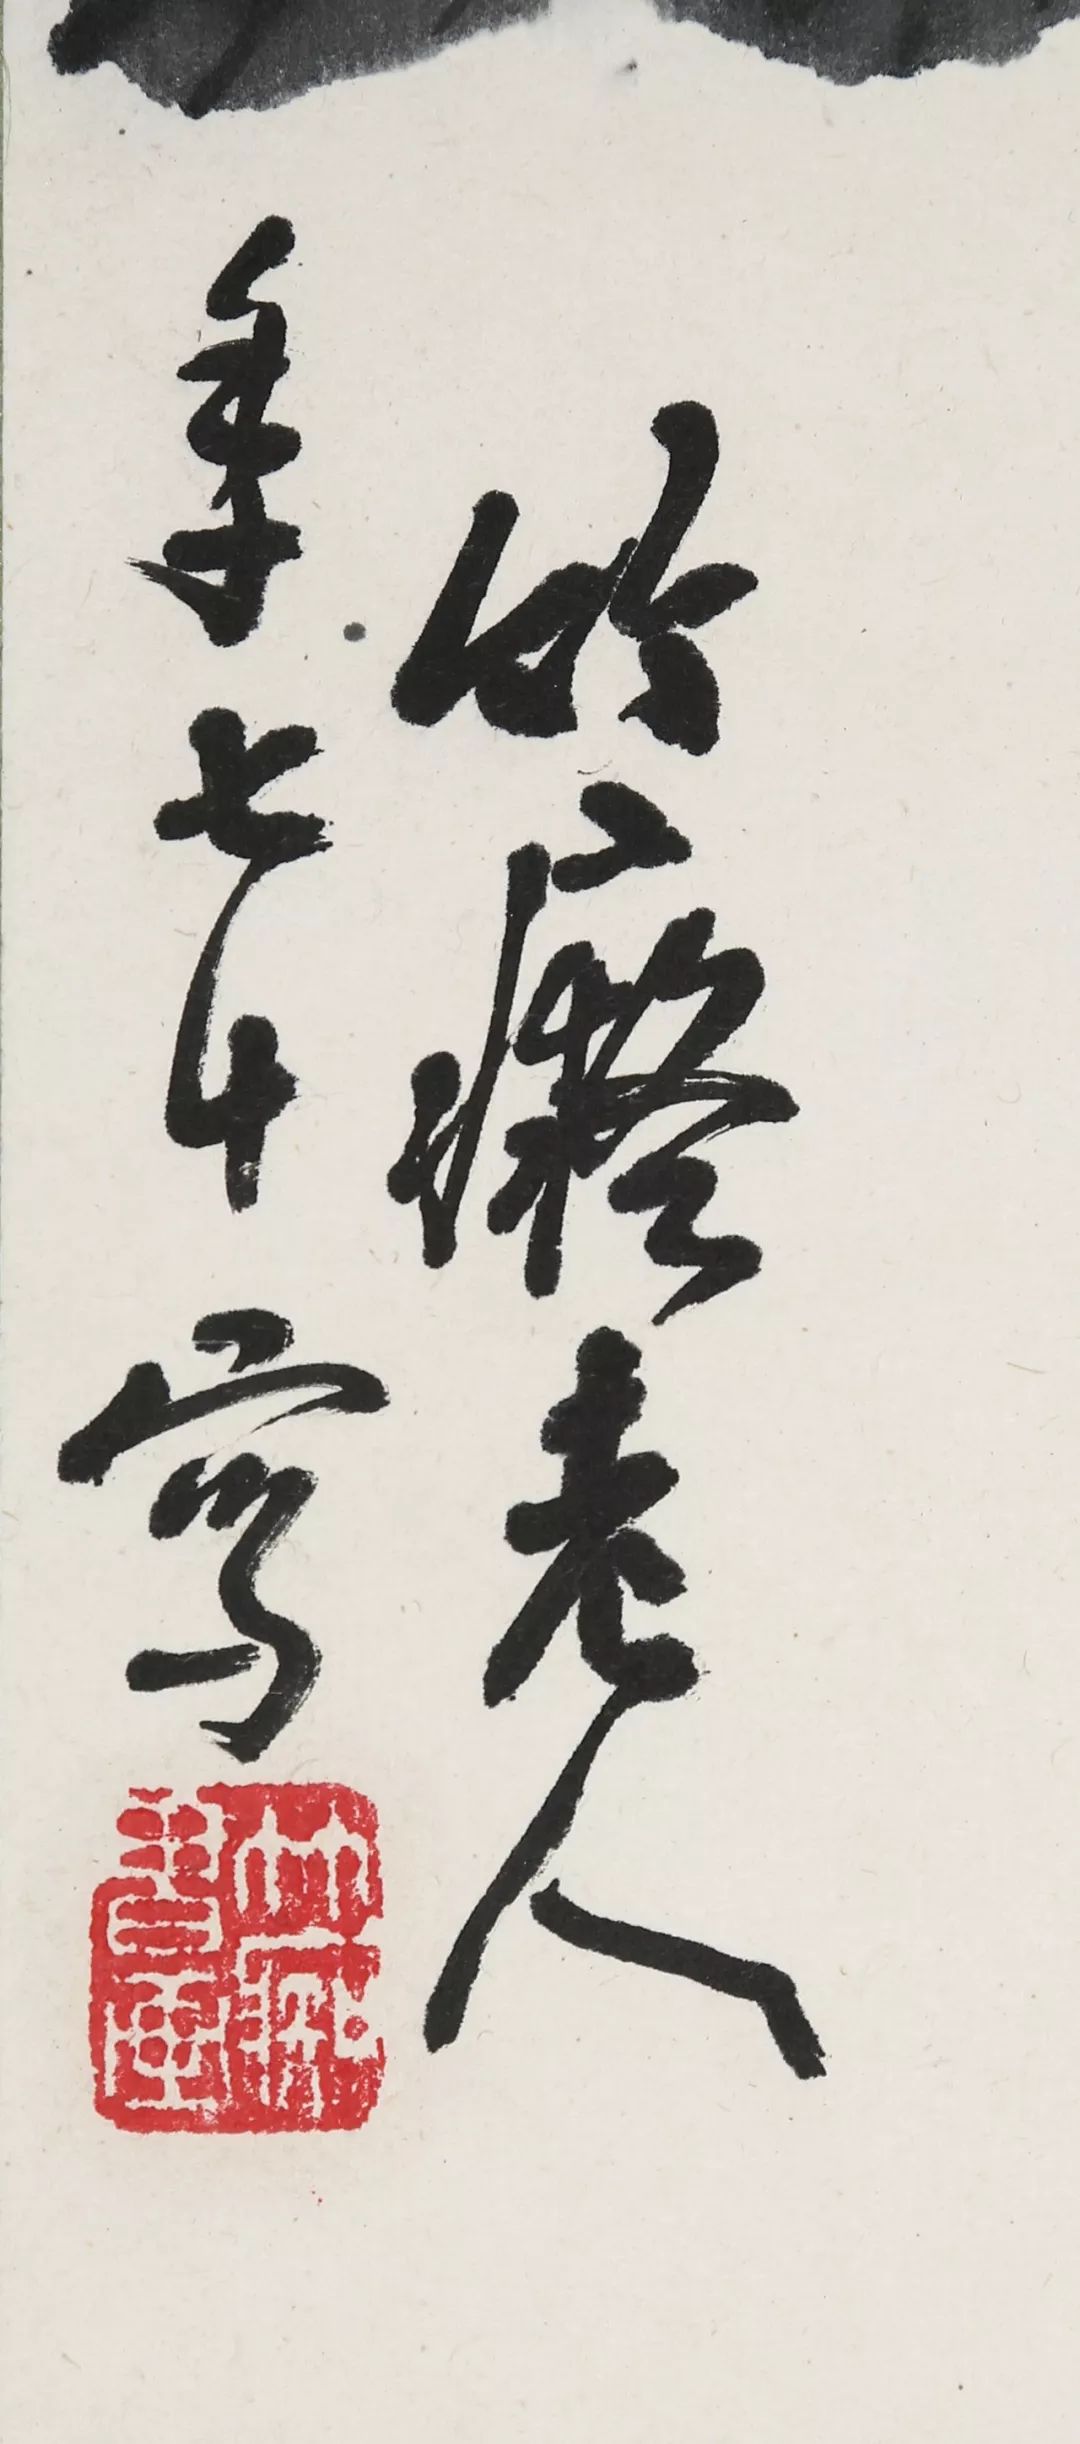 竹癡老人
年七十寫